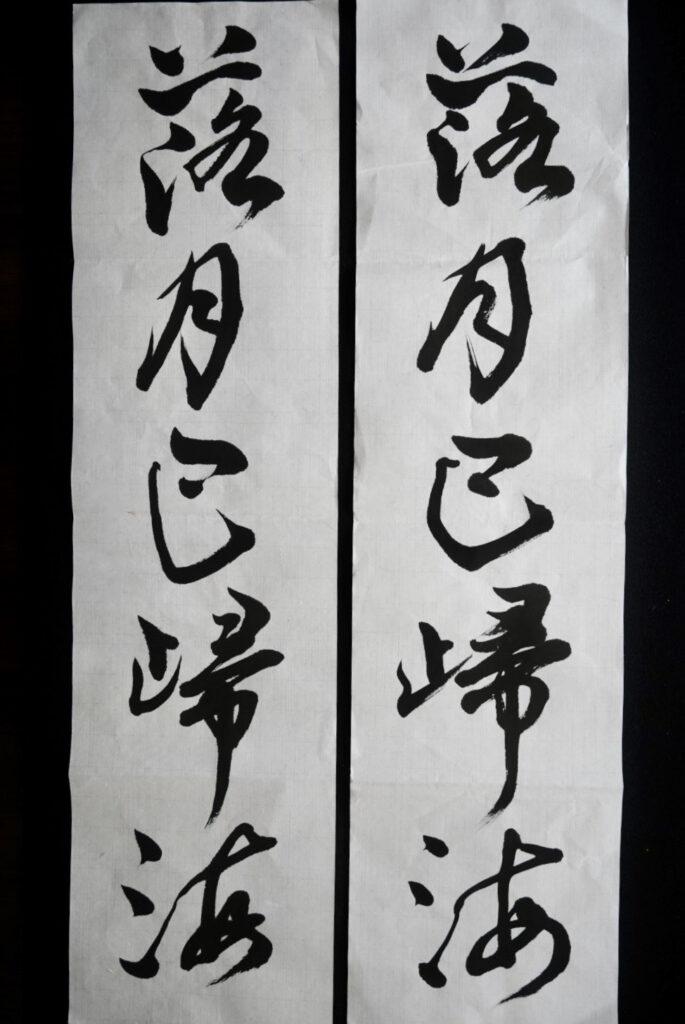 落月已歸海
落月已歸海